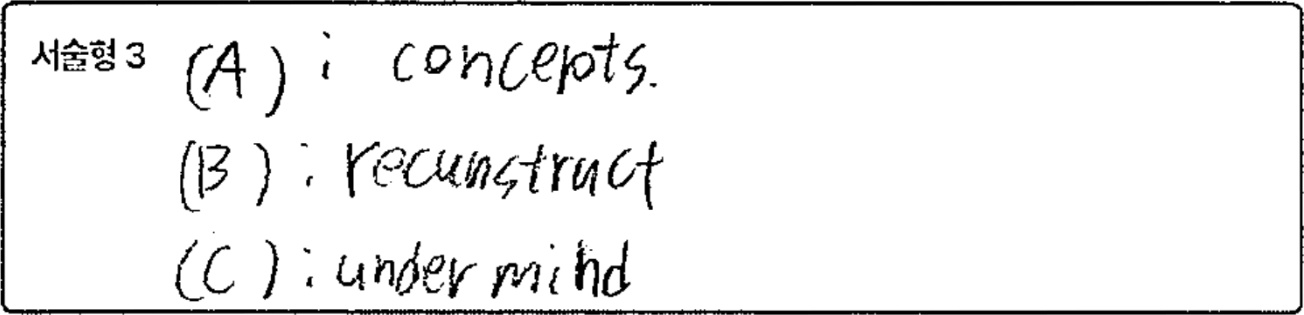 서술형 3 (A) : concepts.
(B) : recunstruct
(C) : under mind